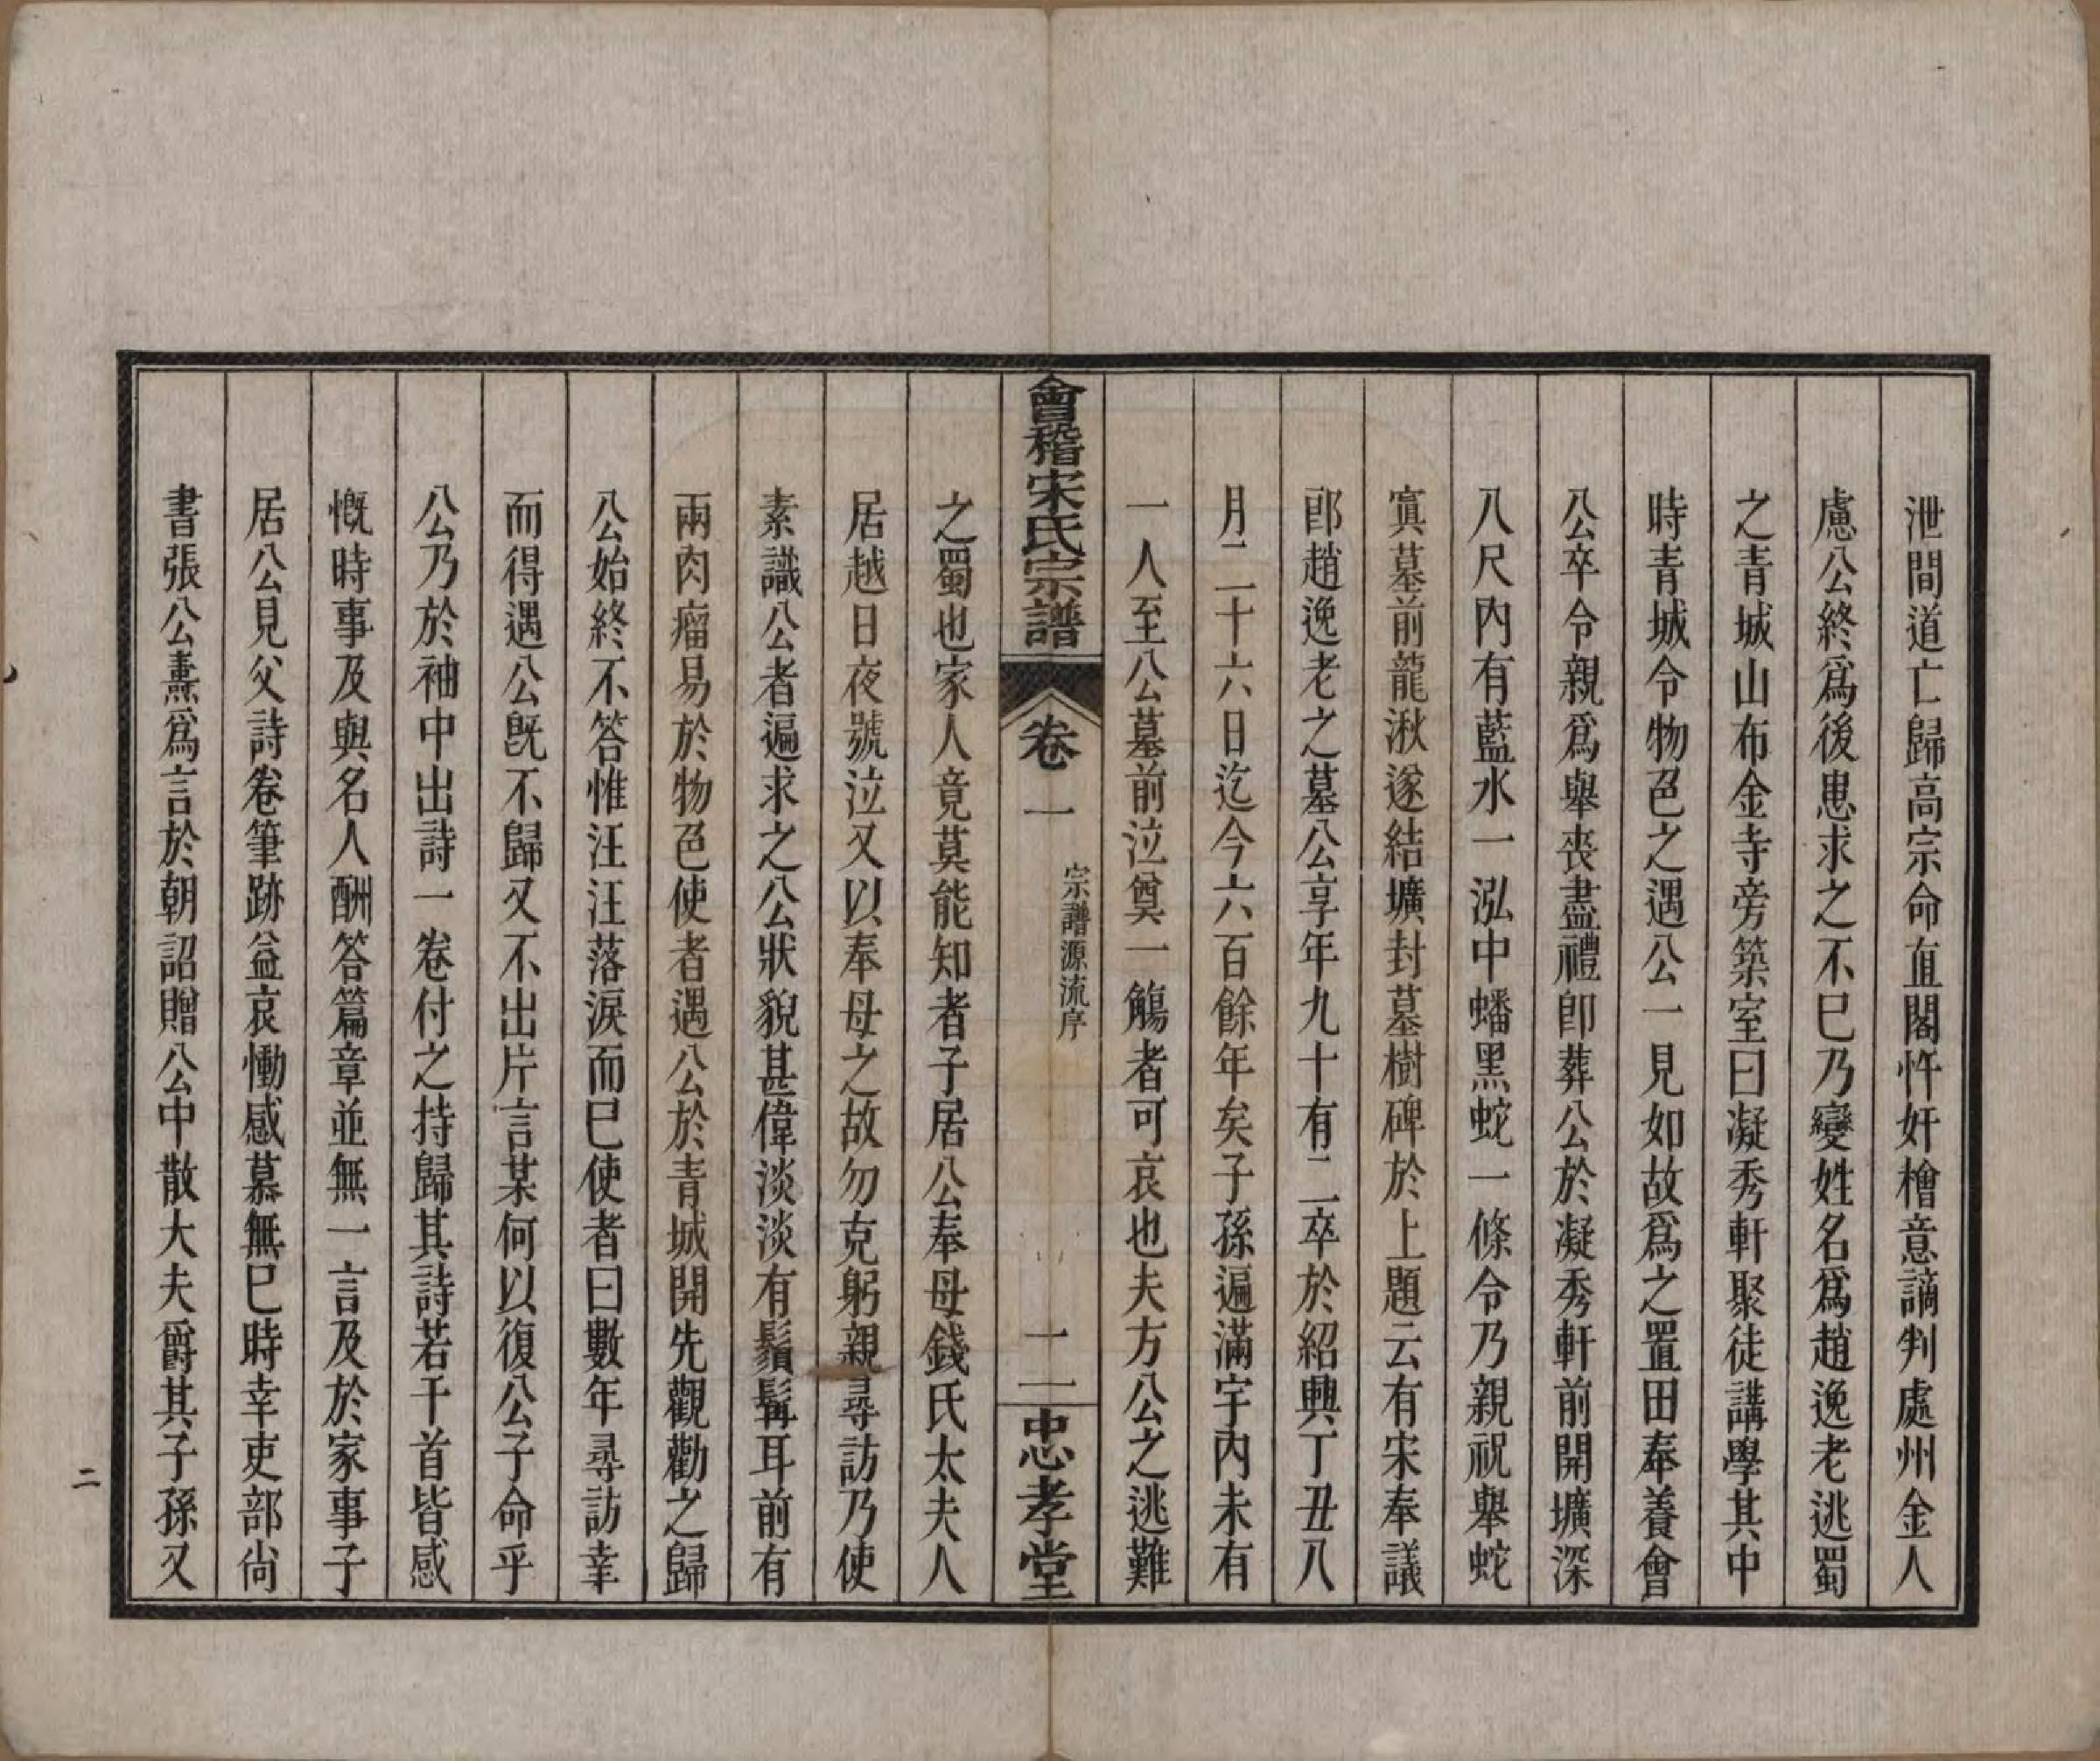 泄間道亡歸高宗命直閣忤奸檜意謫判處州金人
慮公終爲後患求之不巳乃變姓名爲趙逸老逃蜀
之青城山布金寺旁築室曰凝秀軒聚徒講學其中
時青城令物色之遇公一見如故爲之置田奉養會
公卒令親爲舉喪盡禮卽葬公於凝秀軒前開壙深
八尺內有藍水一泓中蟠黑蛇一條令乃親祝舉蛇
寘墓前龍湫遂結壙封墓樹碑於上題云有宋奉議
郎趙逸老之墓公享年九十有二卒於紹興丁丑八
月二十六日迄今六百餘年矣子孫遍滿宇內未有
一人至公墓前泣奠一觴者可哀也夫方公之逃難
會稽宋氏宗譜
卷一
宗譜源流序
十二
忠孝堂
之蜀也家人竟莫能知者子居公奉母錢氏太夫人
居越日夜號泣又以奉母之故勿克躬親尋訪乃使
素識公者遍求之公狀貌甚偉淡淡有鬚髯耳前有
兩肉瘤易於物色使者遇公於青城開先觀勸之歸
公始終不答惟汪汪落淚而巳使者曰數年尋訪幸
而得遇公旣不歸又不出片言某何以復公子命乎
公乃於袖中出詩一卷付之持歸其詩若干首皆感
慨時事及與名人酬答篇章並無一言及於家事子
居公見父詩卷筆跡益哀慟感慕無巳時幸吏部尙
書張公燾爲言於朝詔贈公中散大夫爵其子孫又
二